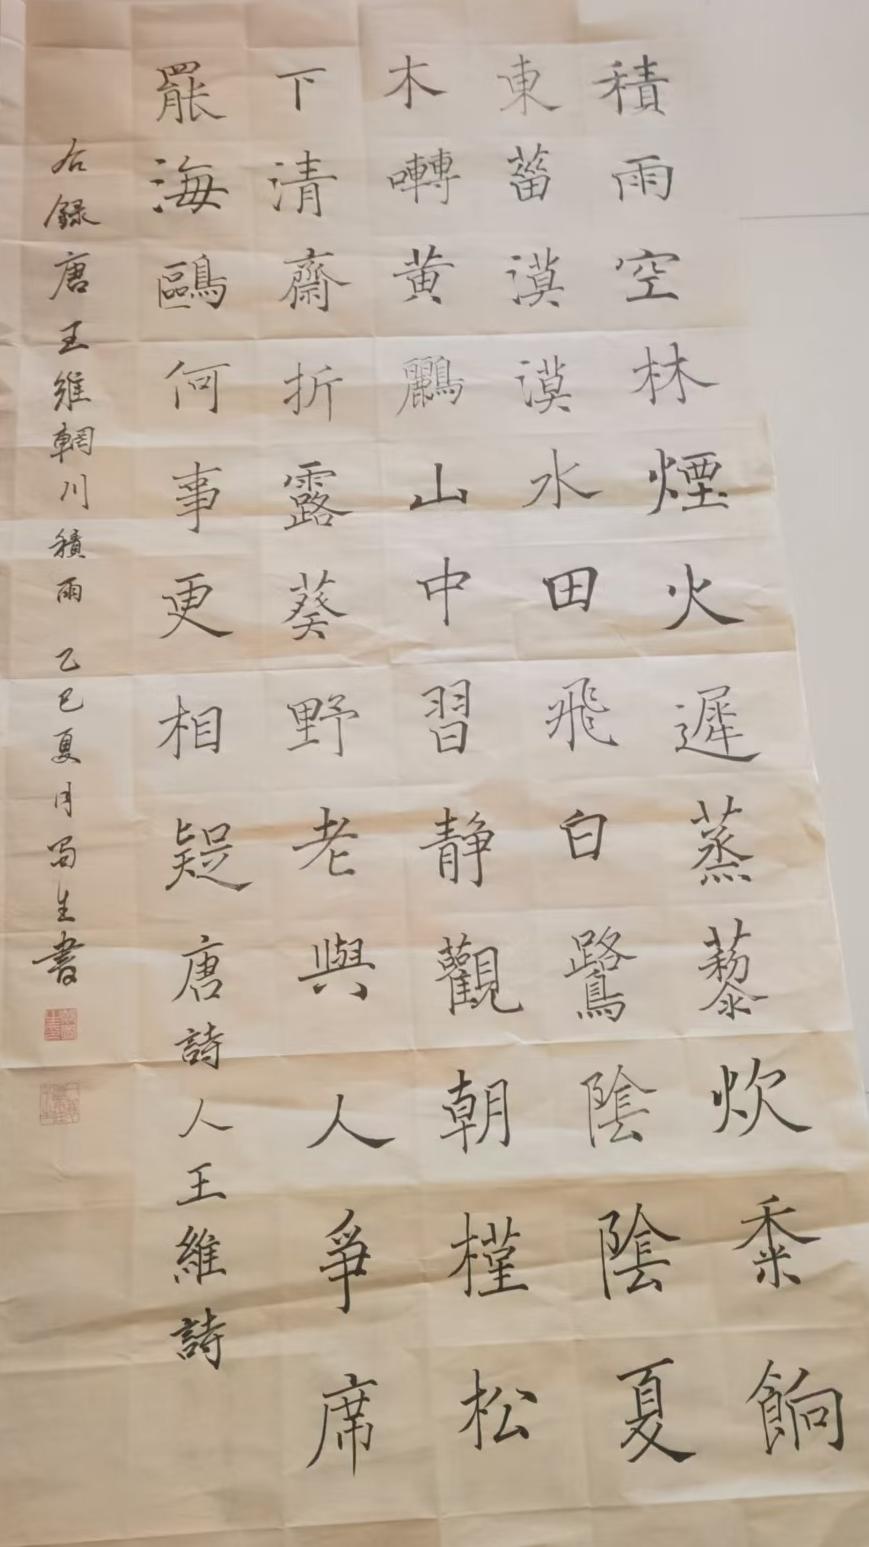 積雨空林煙火遲蒸藜炊黍餉
東菑漠漠水田飛白鷺陰陰夏
木囀黃鸝山中習靜觀朝槿松
下清齋折露葵野老與人爭席
罷海鷗何事更相疑唐詩人王維詩
右錄唐王維輞川積雨乙巳夏月蜀生書